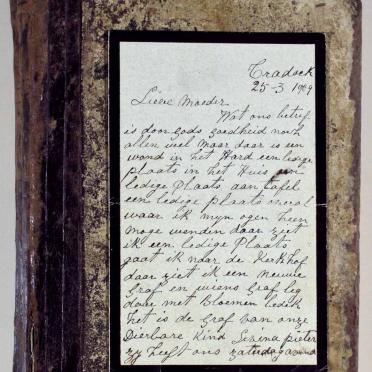 Cradock
25-3 1909
Lieve Moeder
Wat ons betref
is door gods goedheid noch
allen wel maar daar is een
wond in het Hard een ledige
plaats in het Huis een
ledige Plaats aan tafel
een ledige plaats overal
waar ik myn ogen heen
moge wenden daar ziet
ik een ledige Plaats
gaat ik naar de Kerkhof
daar ziet ik een nieuwe
Graf en wiens Graf leg
daar met Bloemen bedek
het is de Graf van onze
Dierbare Kind
zy heeft ons zaterdag